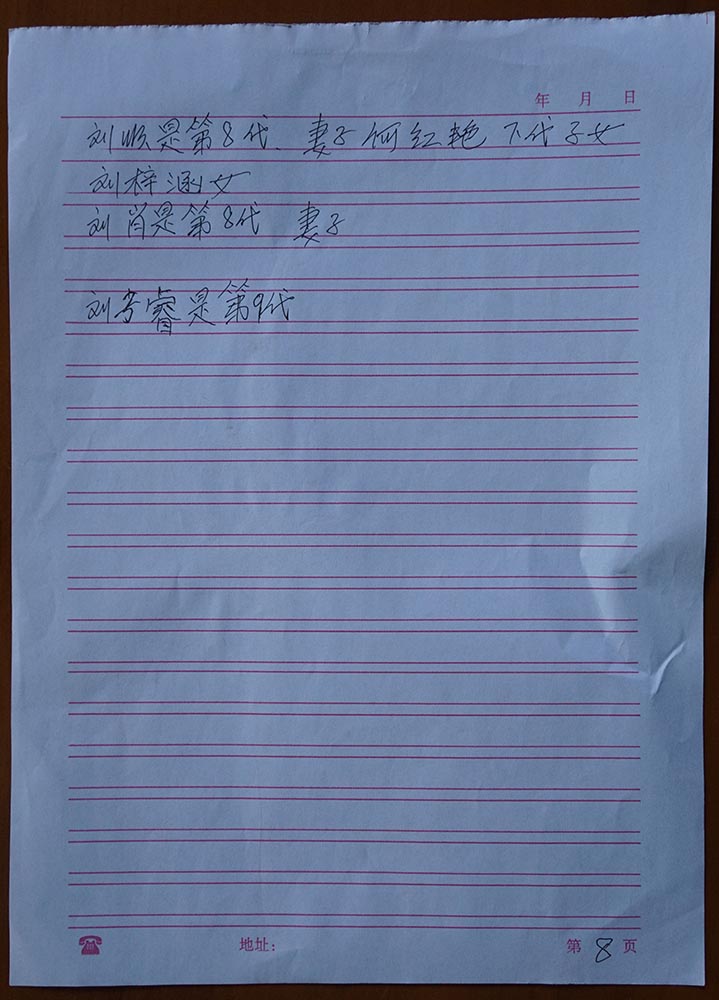 年 月 日
刘顺是第8代.妻子何红艳 下代子女
刘梓涵女
刘肖是第8代 妻子
刘睿是第9代
地址: 第8页